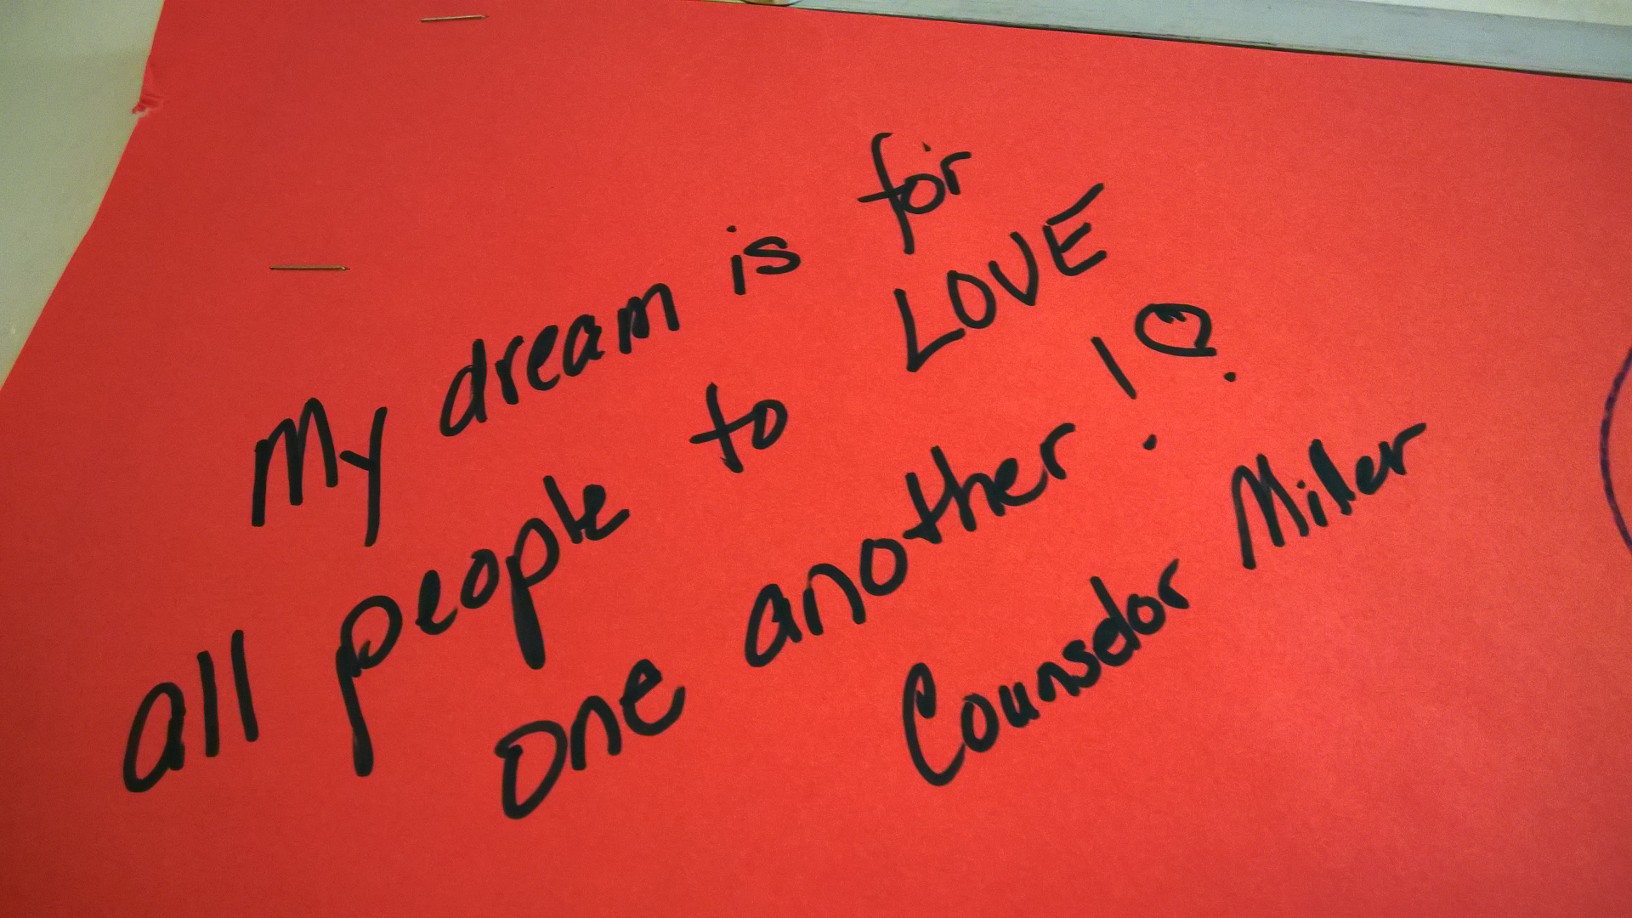 My dream is for
all people to LOVE
one another!
Counselor Miller